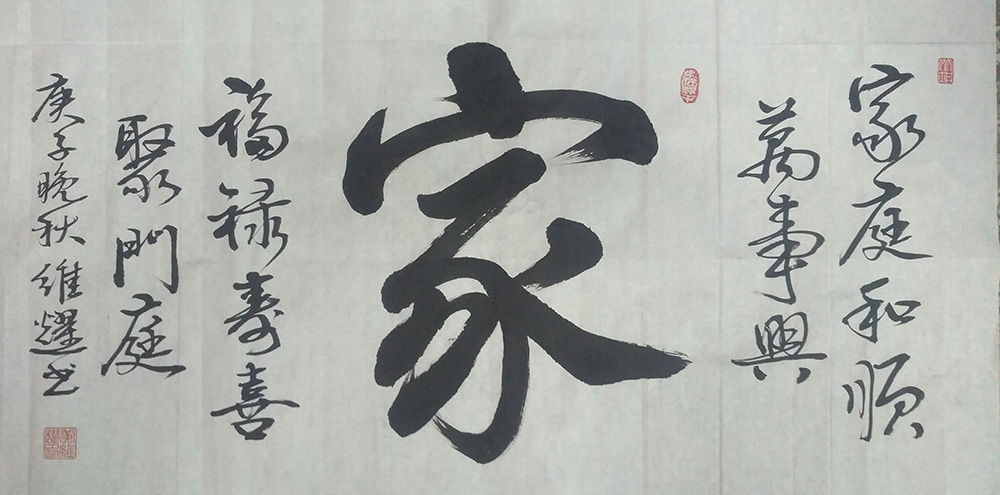 家庭和顺
萬事興
家
福禄寿喜
聚門庭
庚子晚秋维耀书